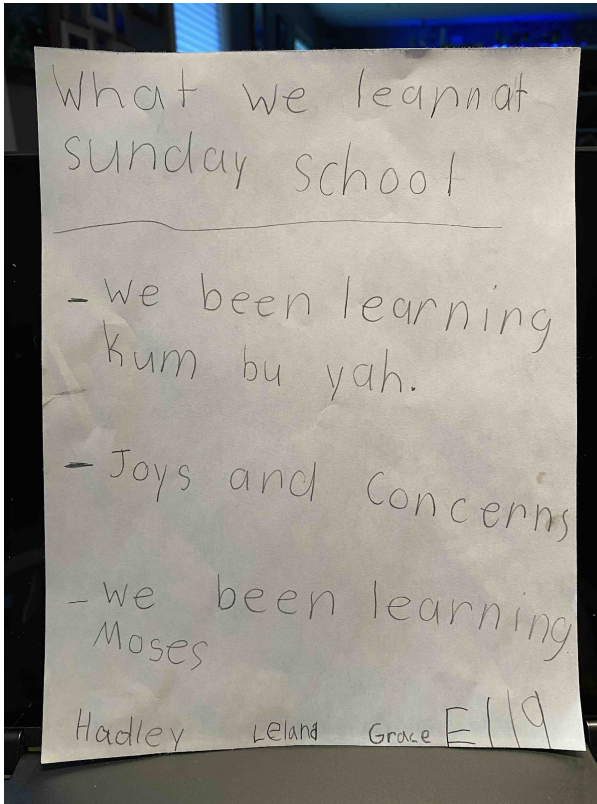 What we leapnat
sunday school
- We been learning
kum bu yah.
- Joys and Concerns
- We been learning
Moses
Hadley Leland Grace Ella